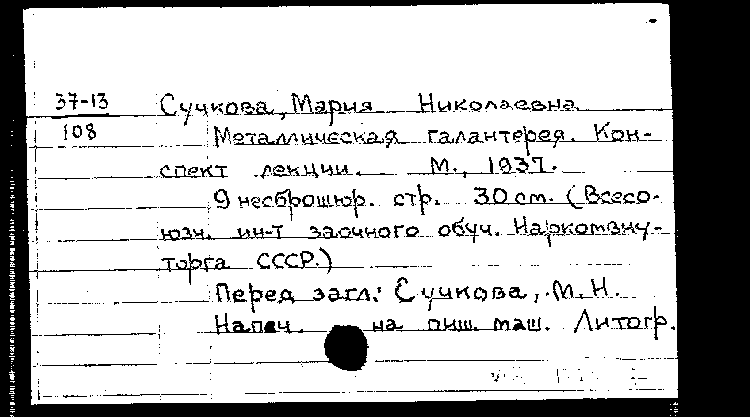 37-13
108
Сучкова, Мария Николаевна
Металлическая галантерея. Кон-
спект лекции. М., 1937.
9 несброшюр. стр. 30 см. (Всесо-
юзн. ин-т заочного обуч. Наркомвну-
торга СССР.)
Перед загл.: Сучкова, М.Н.
Напеч. на пиш. маш. Литогр.